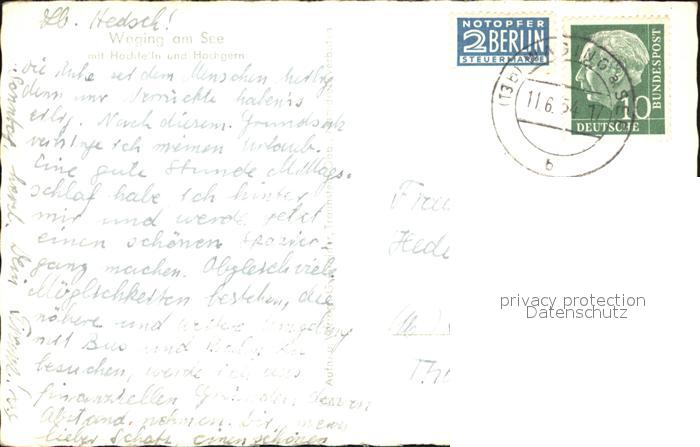 Lb. Hedsch!
Waging am See
mit Hochfelln und Hochgern
Die Ruhe ist dem Menschen heilig
denn nur Verrückte haben's
eilig. Nach diesem Grundsatz
verbringe ich meinen Urlaub.
Eine gute Stunde Mittags-
schlaf habe ich hinter
mir und werde jetzt
einen schönen Spazier-
gang machen. Obgleich viele
Möglichkeiten bestehen, die
nähere und weitere Umgebung
mit Bus und Bahn zu
besuchen, werde ich aus
finanziellen Gründen davon
Abstand nehmen. Dir, mein
lieber Schatz einen schönen
NOTOPFER
2 BERLIN
STEUERMARKE
(13b) WAGING a. SEE
11.6.54
b
10
DEUTSCHE
BUNDESPOST
Frau
Hede
privacy protection
Datenschutz